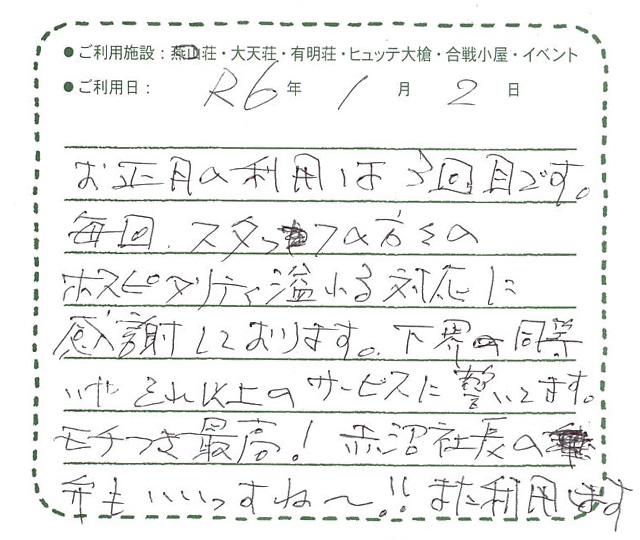 ●ご利用施設：燕山荘・大天荘・有明荘・ヒュッテ大槍・合戦小屋・イベント
●ご利用日： R6年 1月 2日
お正月の利用は3回目です。
毎回、スタッフの方々の
ホスピタリティ溢れる対応に
感謝しております。下界の同等
いやそれ以上のサービスに驚いてます。
モチつき最高！赤沼社長の
弁もいいっすね〜!!また利用します